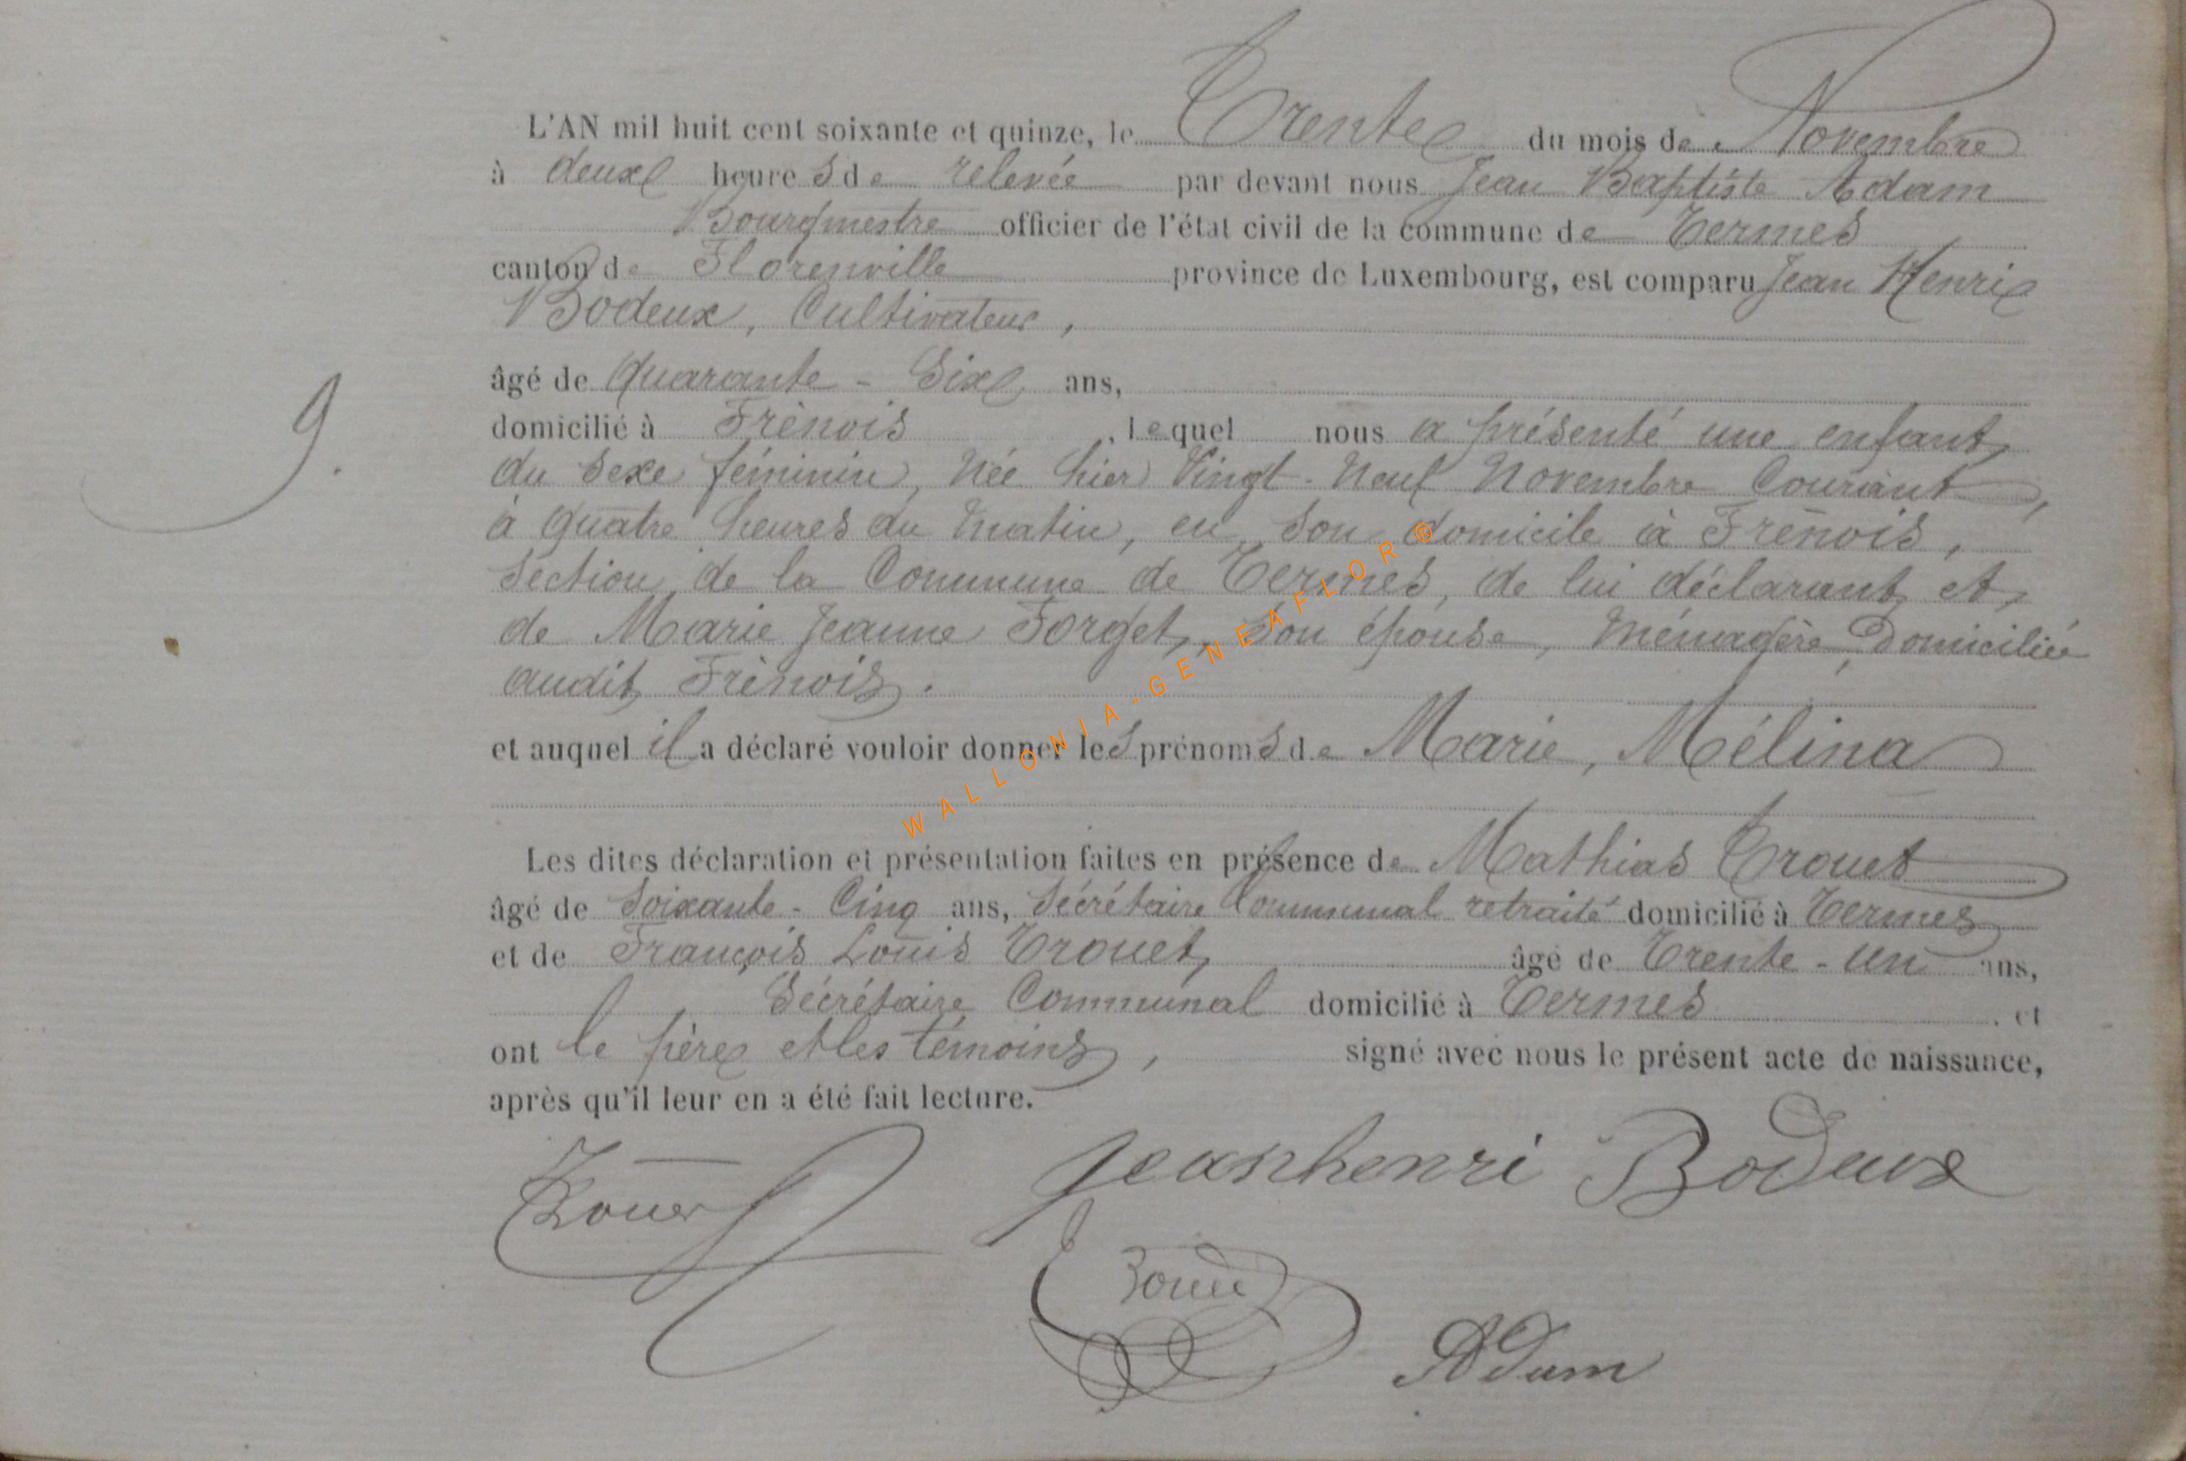 L'AN mil huit cent soixante et quinze, le Trente du mois de Novembre
à deux heures de relevée par devant nous Jean Baptiste Adam
Bourgmestre officier de l'état civil de la commune de Termes
canton de Florenville province de Luxembourg, est comparu Jean Henri
Bodeux, Cultivateur,
âgé de quarante - Six ans,
domicilié à Frènois, lequel nous a présenté une enfant
9.
du Sexe féminin, née hier Vingt-Neuf Novembre Courant,
à quatre heures du matin, en son domicile à Frènois,
Section de la Commune de Termes, de lui déclarant et
de Marie Jeanne Forget, Son épouse, Ménagère, Domiciliée
audit Frènois.
et auquel il a déclaré vouloir donner les prénoms de Marie, Mélina
Les dites déclaration et présentation faites en présence de Mathias Trouet
âgé de Soixante-Cinq ans, Sécrétaire Communal retraité domicilié à Termes
et de François Louis Trouet, âgé de Trente-un ans,
Sécrétaire Communal domicilié à Termes, et
ont le père et les témoins, signé avec nous le présent acte de naissance,
après qu'il leur en a été fait lecture.
Trouet Jeanhenri Bodeux
Adam
WALLONIA-GENEAFLOR®